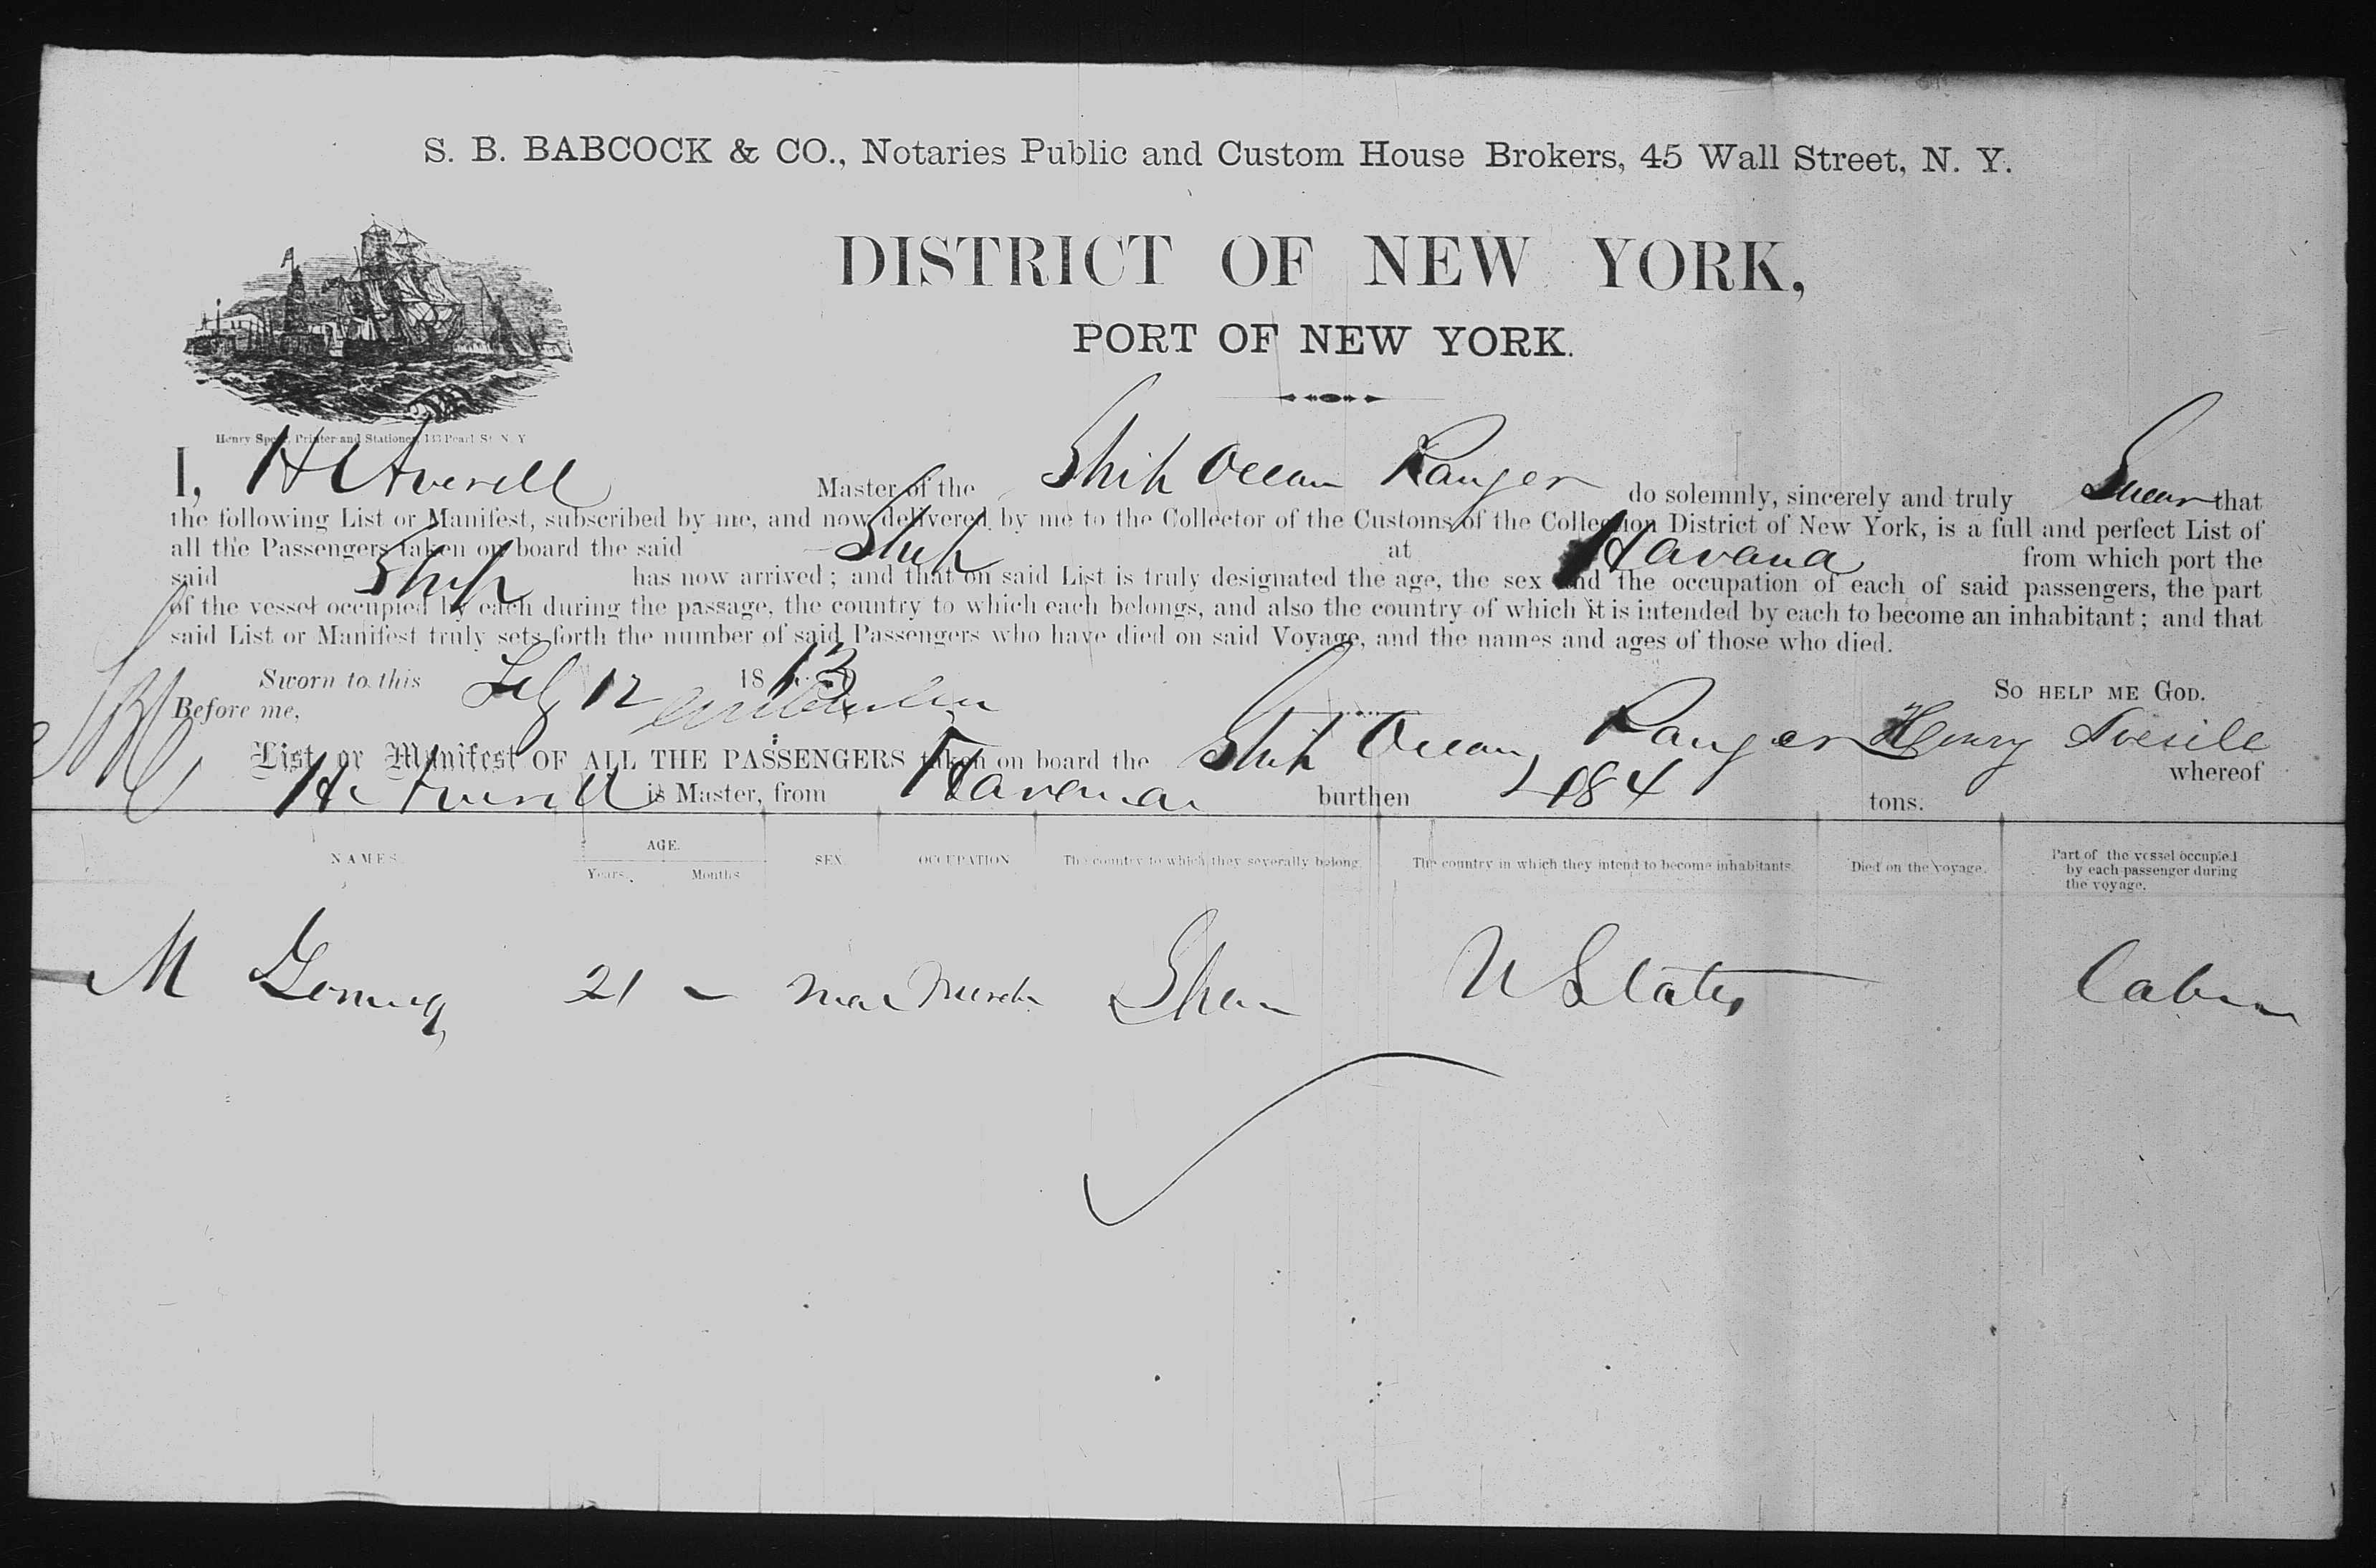 S. B. BABCOCK & CO., Notaries Public and Custom House Brokers, 45 Wall Street, N. Y.
DISTRICT OF NEW YORK,
PORT OF NEW YORK.
Henry Spear, Printer and Stationer, 133 Pearl St. N. Y
I, H Averell Master of the Ship Ocean Ranger do solemnly, sincerely and truly Swear that
the following List or Manifest, subscribed by me, and now delivered by me to the Collector of the Customs of the Collection District of New York, is a full and perfect List of
all the Passengers taken on board the said Ship at Havana from which port the
said Ship has now arrived; and that on said List is truly designated the age, the sex and the occupation of each of said passengers, the part
of the vessel occupied by each during the passage, the country to which each belongs, and also the country of which it is intended by each to become an inhabitant; and that
said List or Manifest truly sets forth the number of said Passengers who have died on said Voyage, and the names and ages of those who died.
Sworn to this 12 1873 SO HELP ME GOD.
Before me, Henry Averill
List or Manifest OF ALL THE PASSENGERS taken on board the Ship Ocean Ranger whereof
H Averill is Master, from Havana burthen tons.
NAMES. AGE. Years. Months SEX. OCCUPATION The country to which they severally belong. The country in which they intend to become inhabitants. Died on the voyage. Part of the vessel occupied by each passenger during the voyage.
M 21 - Spain U States Cabin